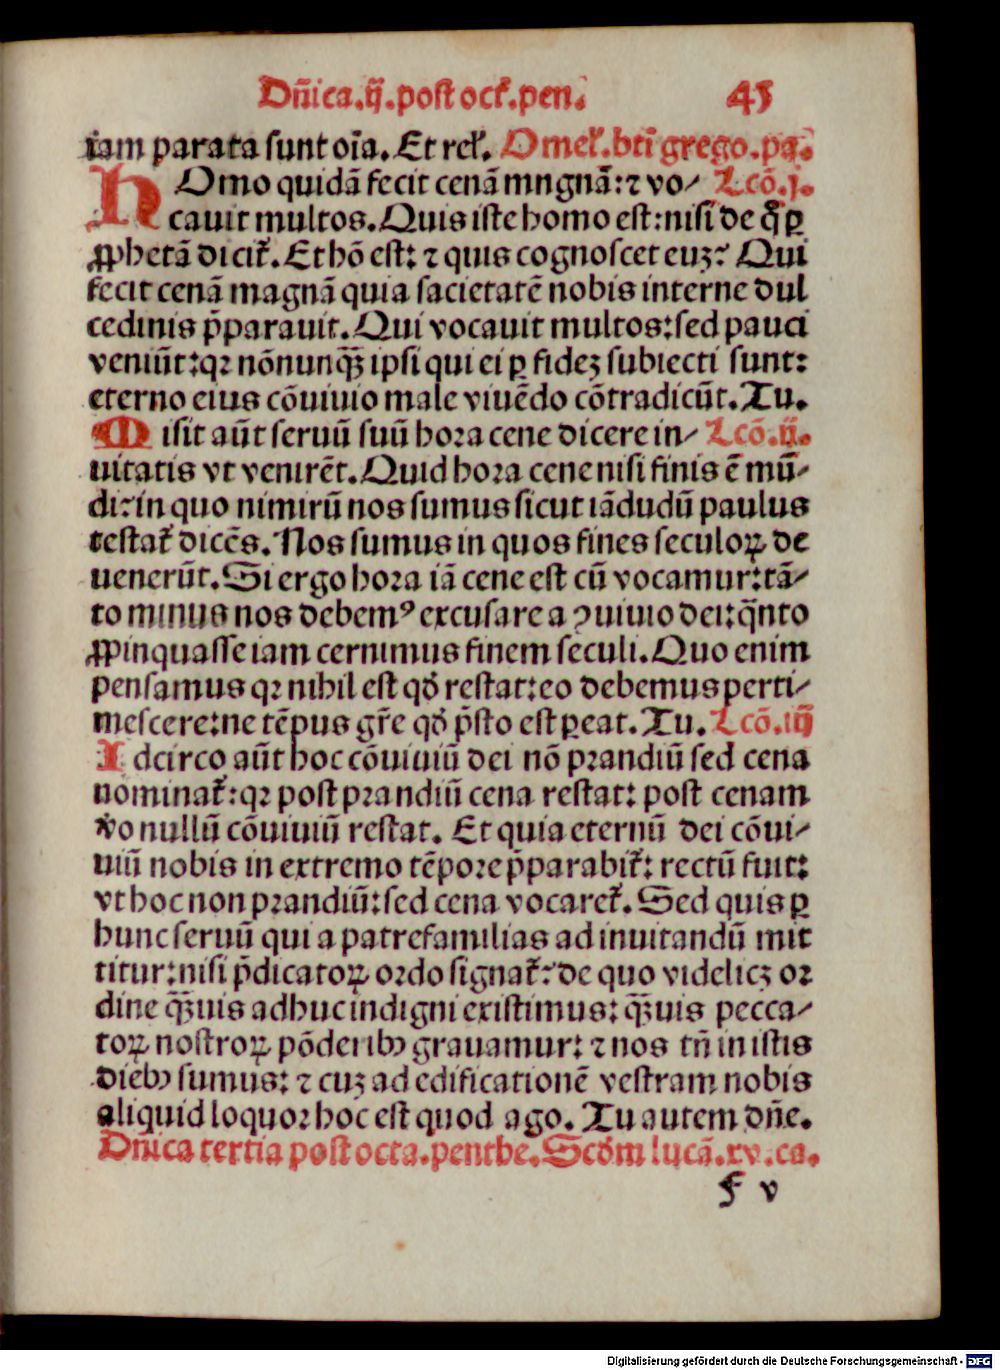 Dn̄ica.ij.post oct̉.pen. 45
iam parata sunt oīa. Et rel̉. Omel̉.bti̅ grego.pa.
HOmo quidā fecit cenā mngnā: ⁊ vo⸗ Lcō.j.
cauit multos. Quis iste homo est: nisi de q̄ ꝑ
ꝓphetā dicit̉. Et hō est: ⁊ quis cognoscet euȝ? Qui
fecit cenā magnā quia sacietatē nobis interne dul
cedinis p̄parauit. Qui vocauit multos: sed pauci
veniūt: qꝛ nōnunqȝ̄ ipsi qui ei ꝑ fideȝ subiecti sunt:
eterno eius cōuiuio male viuēdo cōtradicūt. Tu.
Misit aūt seruū suū hora cene dicere in⸗ Lcō.ij.
uitatis vt venirēt. Quid hora cene nisi finis ē mū⸗
di: in quo nimirū nos sumus sicut iādudū paulus
testat̉ dicēs. Nos sumus in quos fines seculoꝝ de
uenerūt. Si ergo hora iā cene est cū vocamur: tā⸗
to minus nos debemꝰ excusare a ꝯuiuio dei: q̄nto
ꝓpinquasse iam cernimus finem seculi. Quo enim
pensamus qꝛ nihil est qđ restat: eo debemus perti⸗
mescere: ne tēpus gr̄e qđ p̄sto est ꝑeat. Tu. Lcō.iij
Idcirco aūt hoc cōuiuiū dei nō prandiū sed cena
nominat̉: qꝛ post prandiū cena restat: post cenam
v̉o nullū cōuiuiū restat. Et quia eternū dei cōui⸗
uiū nobis in extremo tēpore p̄parabit̉: rectū fuit:
vt hoc non prandiū: sed cena vocaret̉. Sed quis ꝑ
hunc seruū qui a patrefamilias ad inuitandū mit
titur: nisi p̄dicatoꝝ ordo signat̉? de quo videlicȝ or
dine qȝ̄uis adhuc indigni existimus: qȝ̄uis pecca⸗
toꝝ nostroꝝ pōderibꝰ grauamur: ⁊ nos tn̄ in istis
diebꝰ sumus: ⁊ cuȝ ad edificationē vestram nobis
aliquid loquor hoc est quod ago. Tu autem dn̄e.
Dn̄ica tertia post octa.penthe. Scđm lucā.xv.ca.
f v
Digitalisierung gefördert durch die Deutsche Forschungsgemeinschaft - DFG